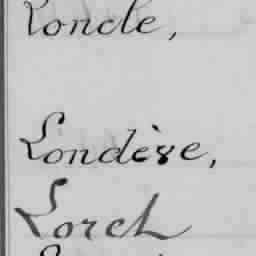 Loncle,
Londèse,
Lorch